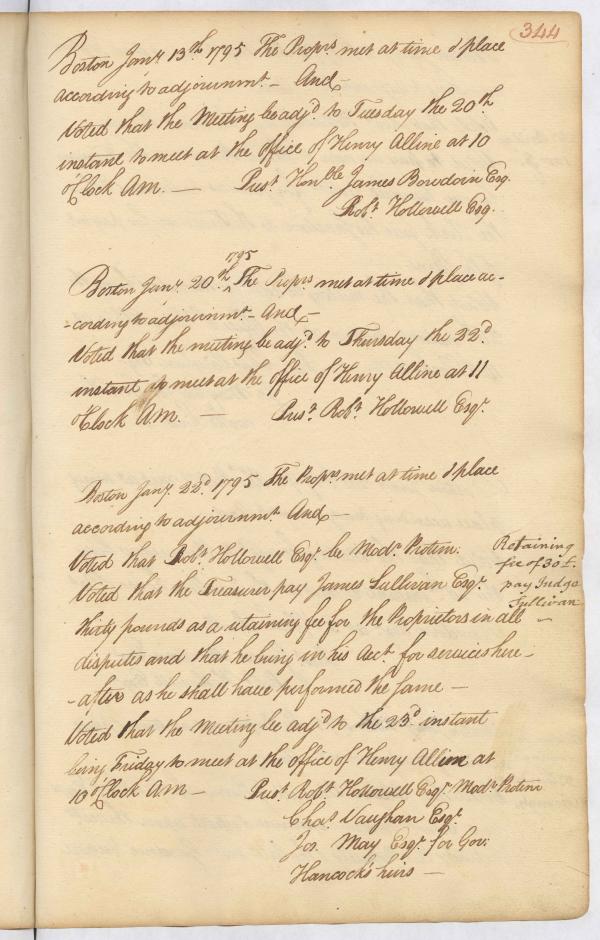 344
Boston Jany. 13th 1795 The Proprs met at time & place
according to adjournmt. - And -
Voted that the Meeting be adjd. to Tuesday the 20th
instant to meet at the office of Henry Alline at 10
oClock AM. — Prest. Honble James Bowdoin Esq.
Robt. Hollowell Esq.
Boston Jany. 20th 1795 The Proprs met at time & place ac-
-cording to adjournmt. - And -
Voted that the meeting be adjd. to Thursday the 22d.
instant to meet at the office of Henry Alline at 11
oClock AM. — Prest. Robt. Hollowell Esqr.
Boston Jany. 22d. 1795 The Proprs met at time & place
according to adjournmt. And -
Voted that Robt. Hollowell Esqr. be Modr. Protem.
Retaining
fee of 30 £.
pay Judge
Sullivan
Voted that the Treasurer pay James Sullivan Esqr.
thirty pounds as a retaining fee for the Proprietors in all
disputes and that he bring in his Acct. for services here-
-after as he shall have performed the same —
Voted that the Meeting be adjd. to the 23d. instant
being Friday to meet at the office of Henry Alline at
10 oClock AM - Prest. Robt. Hollowell Esqr. Modr. Protem
Chas. Vaughan Esqr.
Jos. May Esqr. for Gov:
Hancock's heirs —